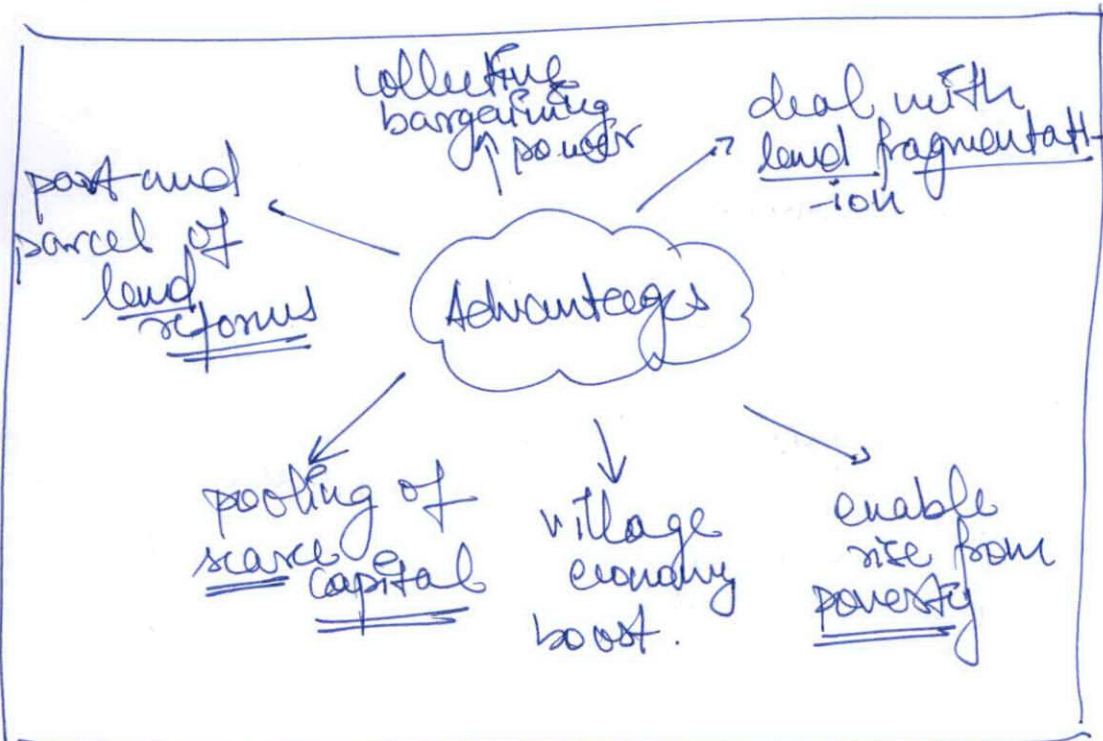 collective
bargaining
power
deal with
land fragmentatt-
-ion
part and
parcel of
land
reforms
Advantages
pooling of
scarce
capital
village
economy
boost.
enable
rise from
poverty